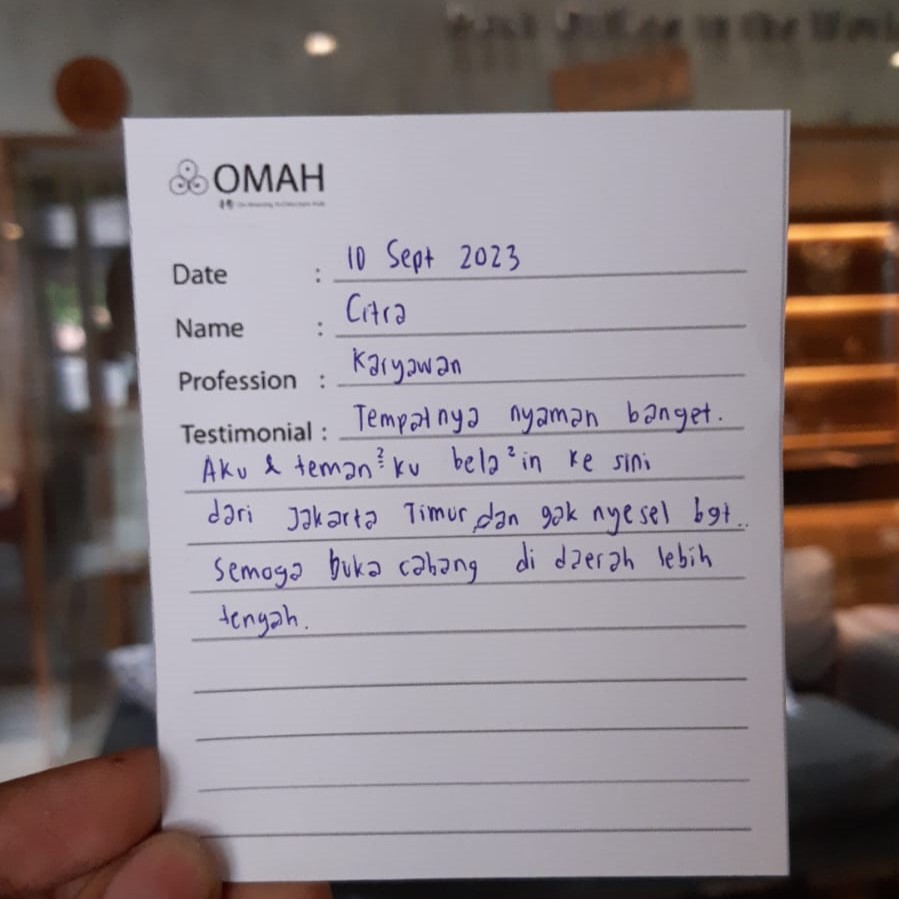 OMAH
Date : 10 Sept 2023
Name : Citra
Profession : Karyawan
Testimonial : Tempatnya nyaman banget.
Aku & teman²ku bela²in ke sini
dari Jakarta Timur dan gak nyesel bgt..
Semoga buka cabang di daerah lebih
tengah.